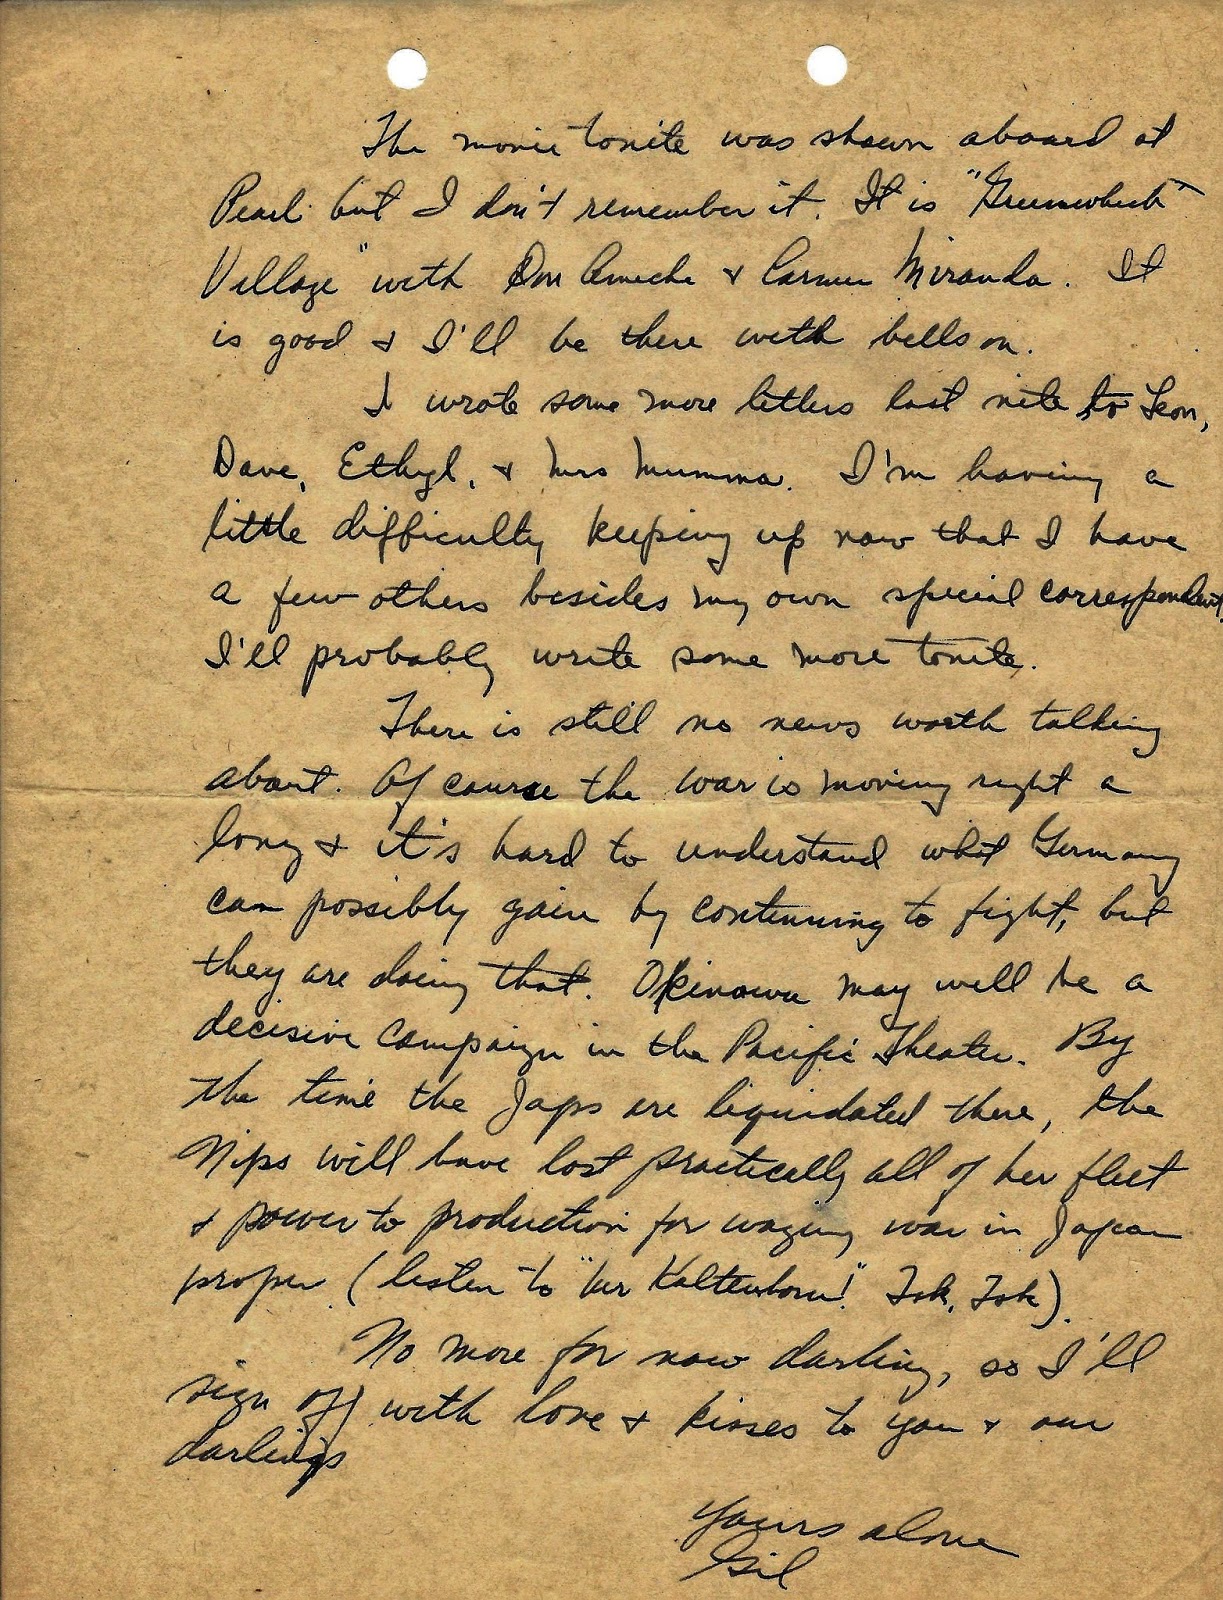 The movie tonite was shown aboard at
Pearl but I don't remember it. It is "Greenwhich
Village" with Don Ameche & Carmen Miranda. It
is good & I'll be there with bells on.
I wrote some more letters last nite to Leon,
Dave, Ethyl, & Mrs Mumma. I'm having a
little difficulty keeping up now that I have
a few others besides my own special correspondent.
I'll probably write some more tonite.
There is still no news worth talking
about. Of course the war is moving right a
long & it's hard to understand what Germany
can possibly gain by continuing to fight, but
they are doing that. Okinawa may will be a
decisive campaign in the Pacific Theater. By
the time the Japs are liquidated there, the
Nips will have lost practically all of her fleet
& power to production for waging war in Japan
proper (listen to "Mr Kaltenborn!" Tsk, Tsk).
No more for now darling, so I'll
sign off with love & kisses to you & our
darlings
Yours alone
Gil